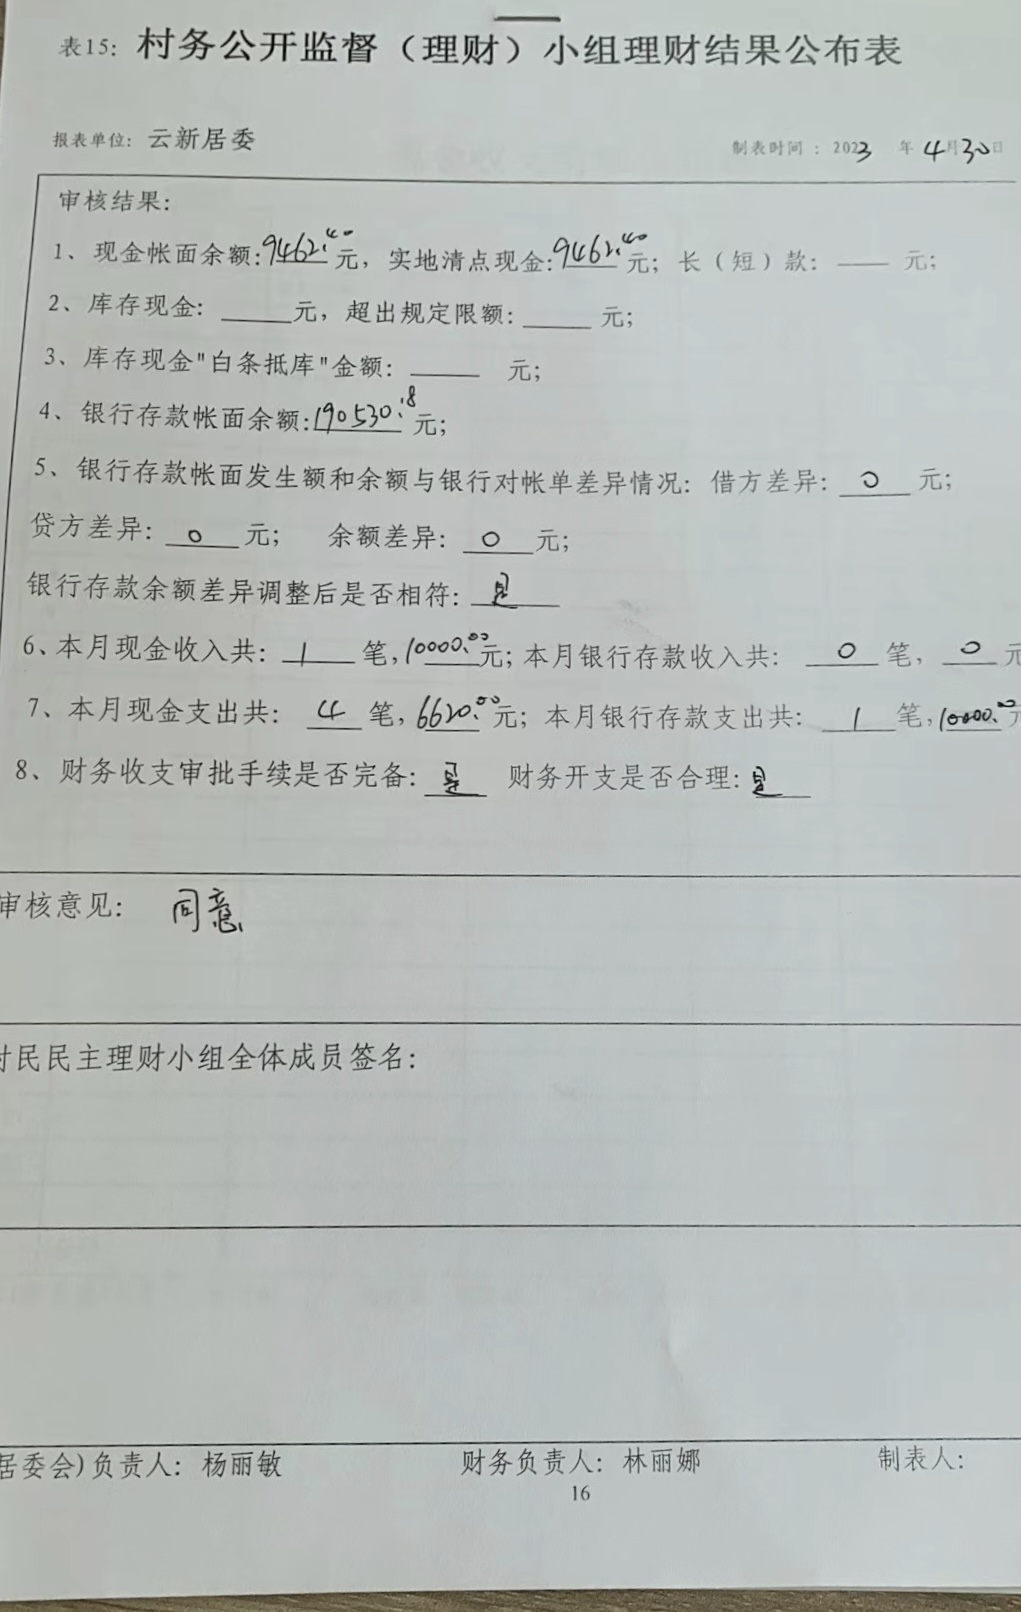 表15：村务公开监督（理财）小组理财结果公布表
报表单位：云新居委 制表时间：2023年4月30日
审核结果：
1、现金帐面余额：9462.40元，实地清点现金：9462.40元；长（短）款：—— 元；
2、库存现金：____元，超出规定限额：____元；
3、库存现金"白条抵库"金额：____ 元；
4、银行存款帐面余额：190530.18元；
5、银行存款帐面发生额和余额与银行对帐单差异情况：借方差异：0元；
贷方差异：0元； 余额差异：0元；
银行存款余额差异调整后是否相符：是
6、本月现金收入共：1笔，10000.00元；本月银行存款收入共：0笔，0元
7、本月现金支出共：4笔，6620.00元；本月银行存款支出共：1笔，10000.00元
8、财务收支审批手续是否完备：是 财务开支是否合理：是
审核意见： 同意
村民民主理财小组全体成员签名：
居委会)负责人：杨丽敏 财务负责人：林丽娜 制表人：
16